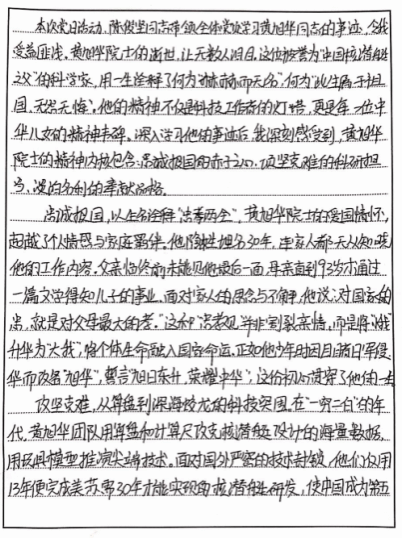 本次党日活动，陈俊坚同志带领全体党员学习黄旭华同志的事迹，令我
受益匪浅。黄旭华院士的逝世，让无数人泪目。这位被誉为“中国核潜艇
之父”的科学家，用一生诠释了何为“赫赫而无名”，何为“此生属于祖
国，无怨无悔”。他的精神不仅是科技工作者的灯塔，更是每一位中
华儿女的精神丰碑。深入学习他的事迹后，我深刻感受到，黄旭华
院士的精神内核包含：忠诚报国的赤子之心、攻坚克难的科研担
当、淡泊名利的奉献品格。
忠诚报国，以生命诠释“忠孝两全”，黄旭华院士的爱国情怀，
超越了个人情感与家庭羁绊。他隐姓埋名30年，连家人都无从知晓
他的工作内容。父亲临终前未能见他最后一面，母亲直到93岁才通过
一篇文学得知儿子的事业。面对家人的思念与不解，他说：“对国家的
忠，就是对父母最大的孝。”这种“忠孝观”并非割裂亲情，而是将“小我”
升华为“大我”，将个体生命融入国家命运。正如他少年时因目睹日军侵
华而改名“旭华”，誓言“旭日东升，荣耀中华”，这份初心贯穿了他的一生
攻坚克难，从算盘到深海蛟龙的科技突围。在“一穷二白”的年
代，黄旭华团队用算盘和计算尺攻克核潜艇设计的海量数据，
用玩具模型推演尖端技术。面对国外严密的技术封锁，他们仅用
13年便完成美苏需30年才能实现的核潜艇研发，使中国成为第五